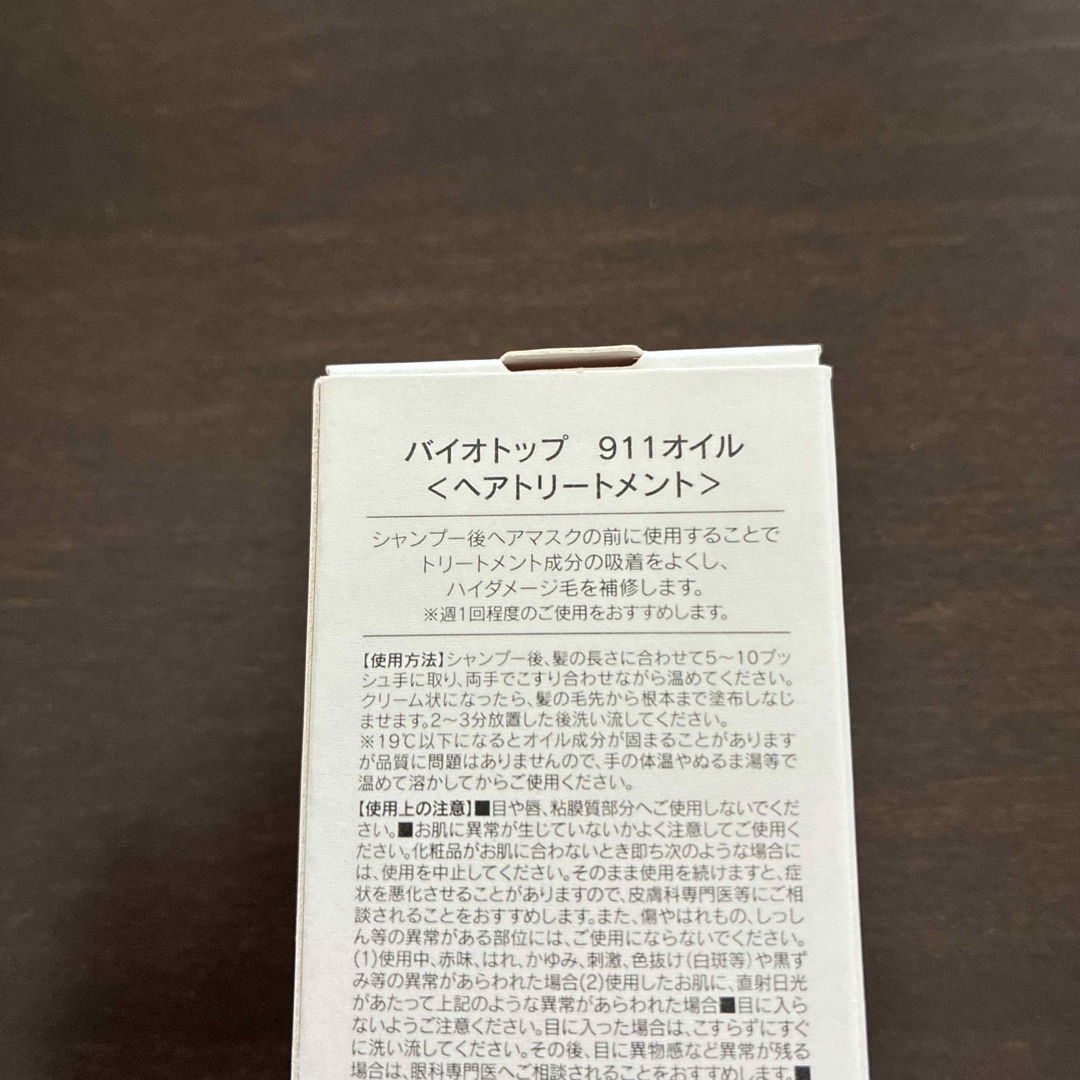 バイオトップ　911オイル
＜ヘアトリートメント＞
シャンプー後ヘアマスクの前に使用することで
トリートメント成分の吸着をよくし、
ハイダメージ毛を補修します。
※週1回程度のご使用をおすすめします。
【使用方法】シャンプー後、髪の長さに合わせて5〜10プッ
シュ手に取り、両手でこすり合わせながら温めてください。
クリーム状になったら、髪の毛先から根本まで塗布しなじ
ませます。2〜3分放置した後洗い流してください。
※19℃以下になるとオイル成分が固まることがあります
が品質に問題はありませんので、手の体温やぬるま湯等で
温めて溶かしてからご使用ください。
【使用上の注意】■目や唇、粘膜質部分へご使用しないでくだ
さい。■お肌に異常が生じていないかよく注意してご使用く
ださい。化粧品がお肌に合わないとき即ち次のような場合に
は、使用を中止してください。そのまま使用を続けますと、症
状を悪化させることがありますので、皮膚科専門医等にご相
談されることをおすすめします。また、傷やはれもの、しっし
ん等の異常がある部位には、ご使用にならないでください。
(1)使用中、赤味、はれ、かゆみ、刺激、色抜け(白斑等)や黒ず
み等の異常があらわれた場合(2)使用したお肌に、直射日光
があたって上記のような異常があらわれた場合■目に入ら
ないようご注意ください。目に入った場合は、こすらずにすぐ
に洗い流してください。その後、目に異物感など異常が残る
場合は、眼科専門医へご相談されることをおすすめします。■